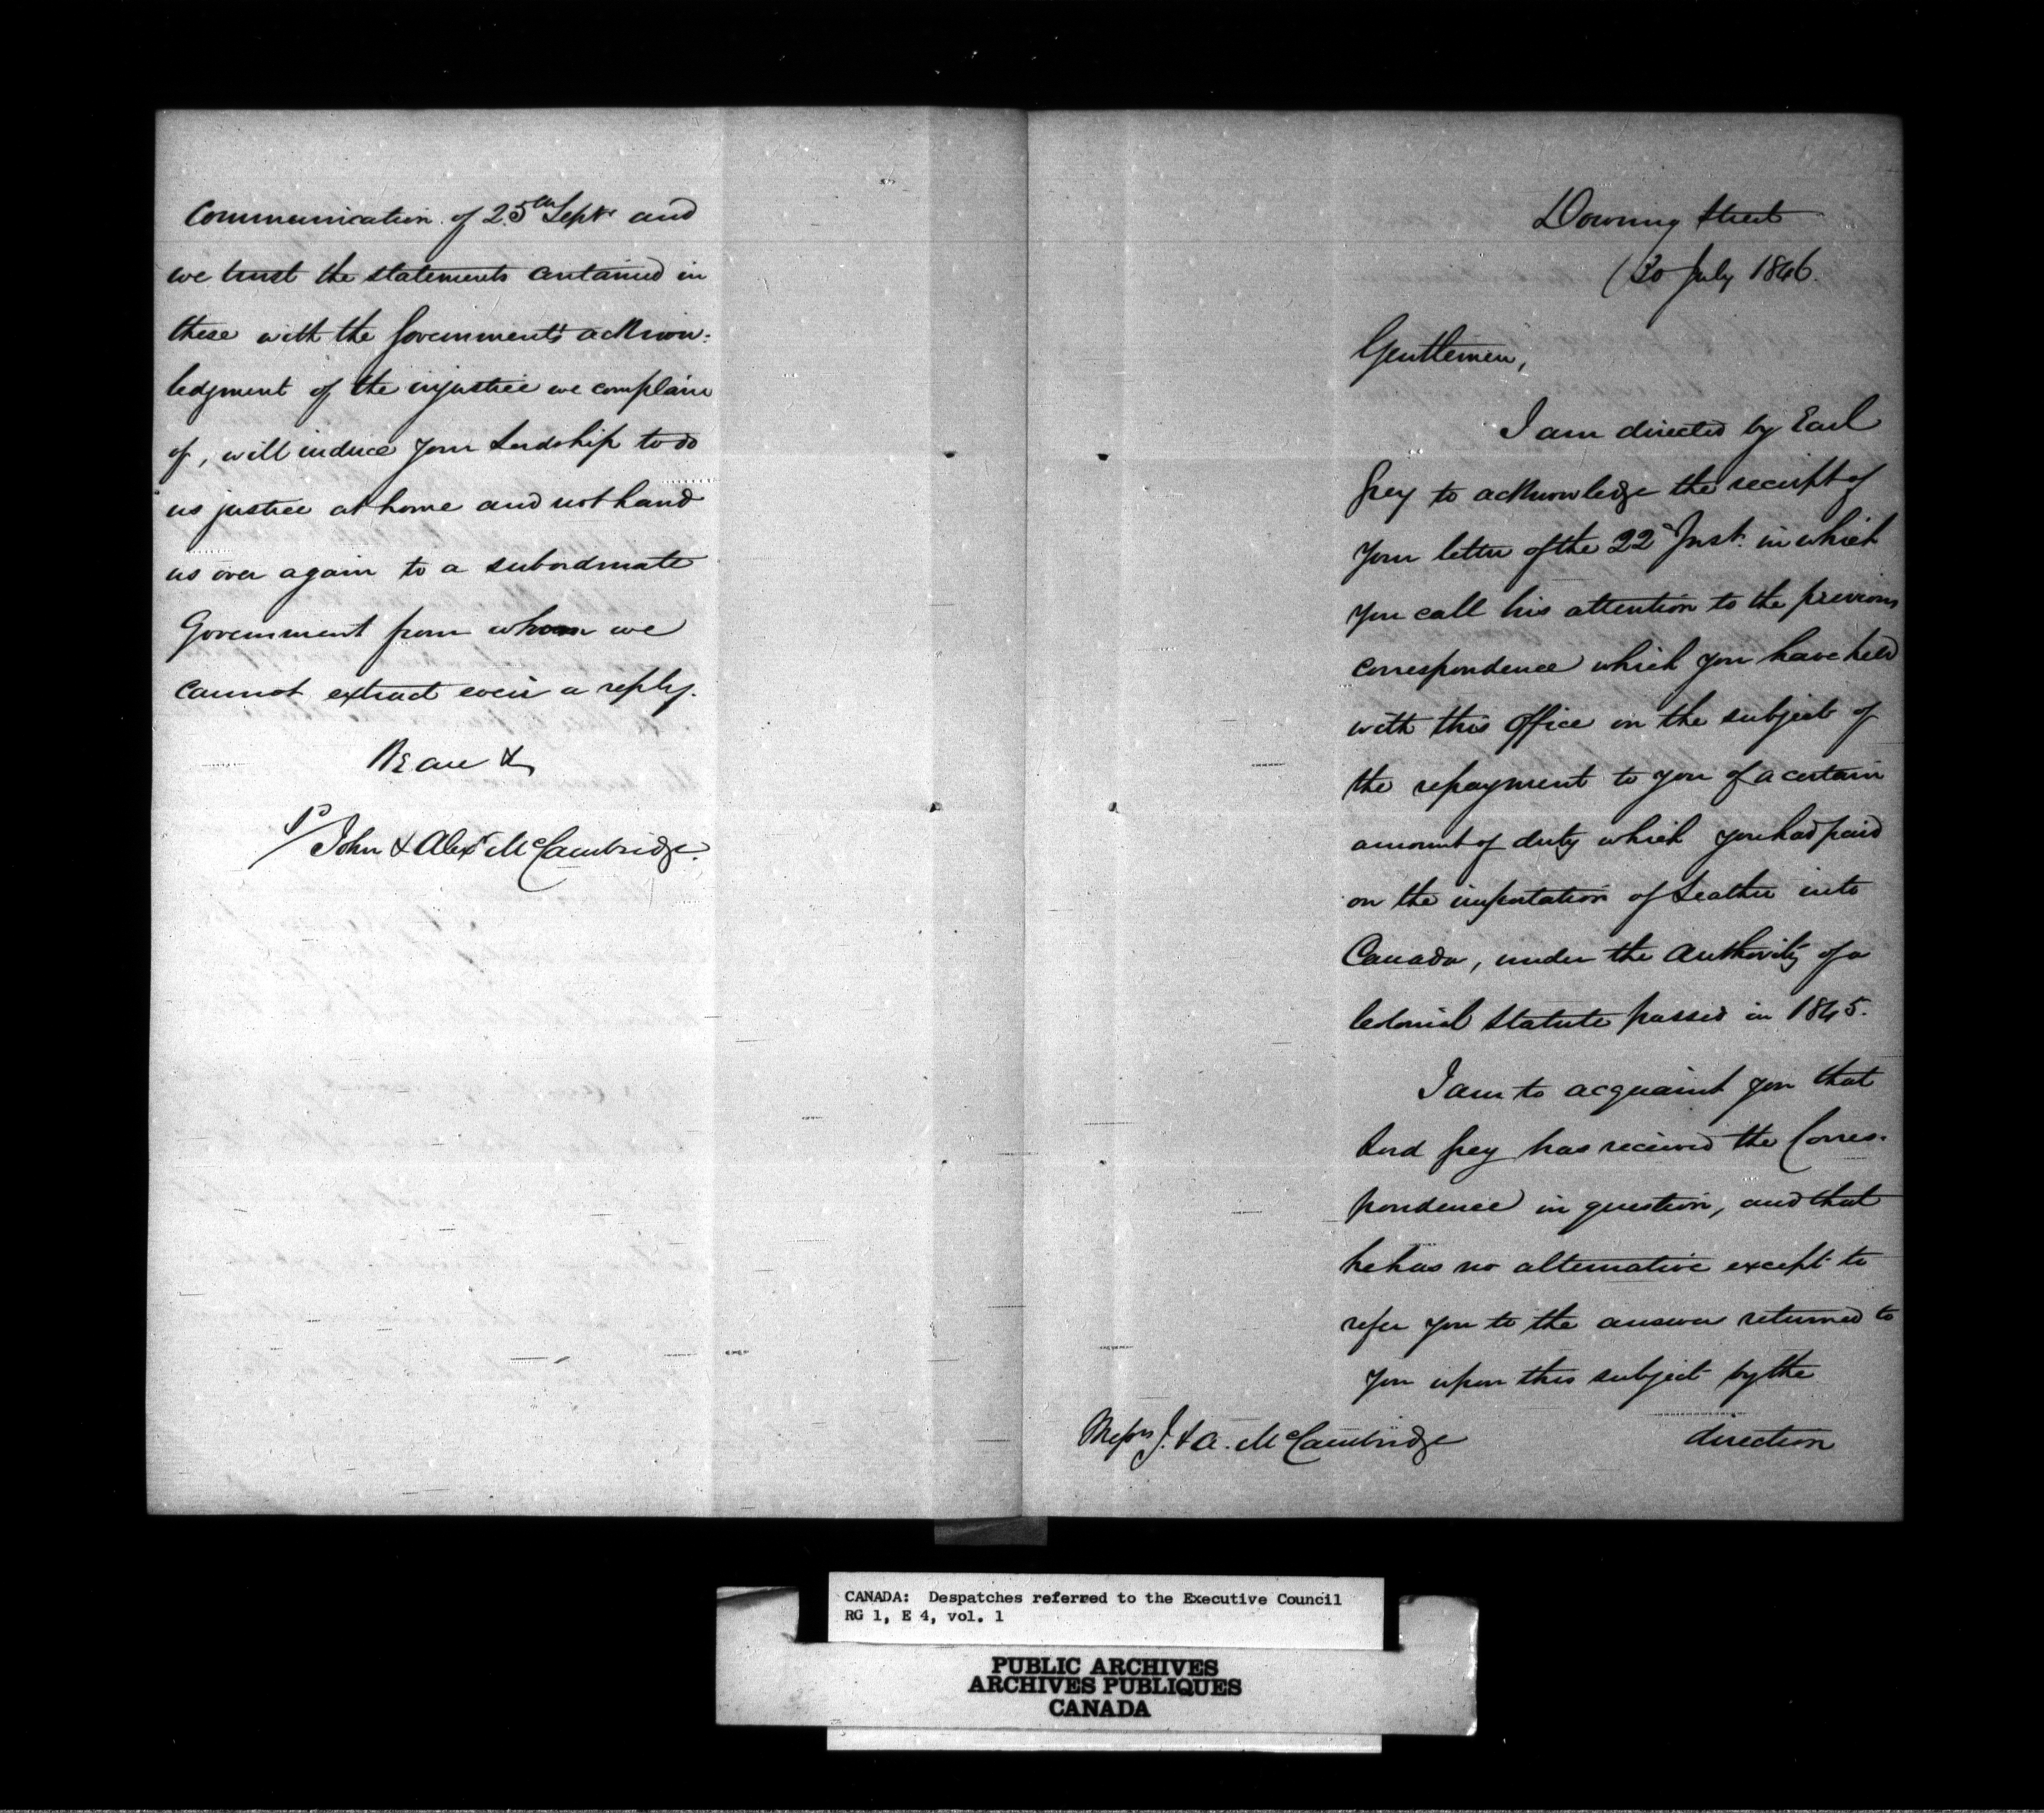 Communication of 25th Septr and
we trust the statements contained in
these with the Government's acknow:
ledgment of the injustice we complain
of, will induce your Lordship to do
us justice at home and not hand
us over again to a subordinate
Government from whom we
cannot extract even a reply.
We are &
John & Alexr McCambridge.
Downing Street
30 July 1846.
Gentlemen,
I am directed by Earl
Grey to acknowledge the receipt of
your letter of the 22d Inst. in which
you call his attention to the previous
correspondence which you have held
with this Office on the subject of
the repayment to you of a certain
amount of duty which you had paid
on the importation of Leather into
Canada, under the Authority of a
Colonial Statute passed in 1845.
I am to acquaint you that
Lord Grey has received the Corres-
pondence in question, and that
he has no alternative except to
refer you to the answer returned to
you upon this subject by the
direction
Messrs J. & A. McCambridge
CANADA: Despatches referred to the Executive Council
RG 1, E 4, vol. 1
PUBLIC ARCHIVES
ARCHIVES PUBLIQUES
CANADA